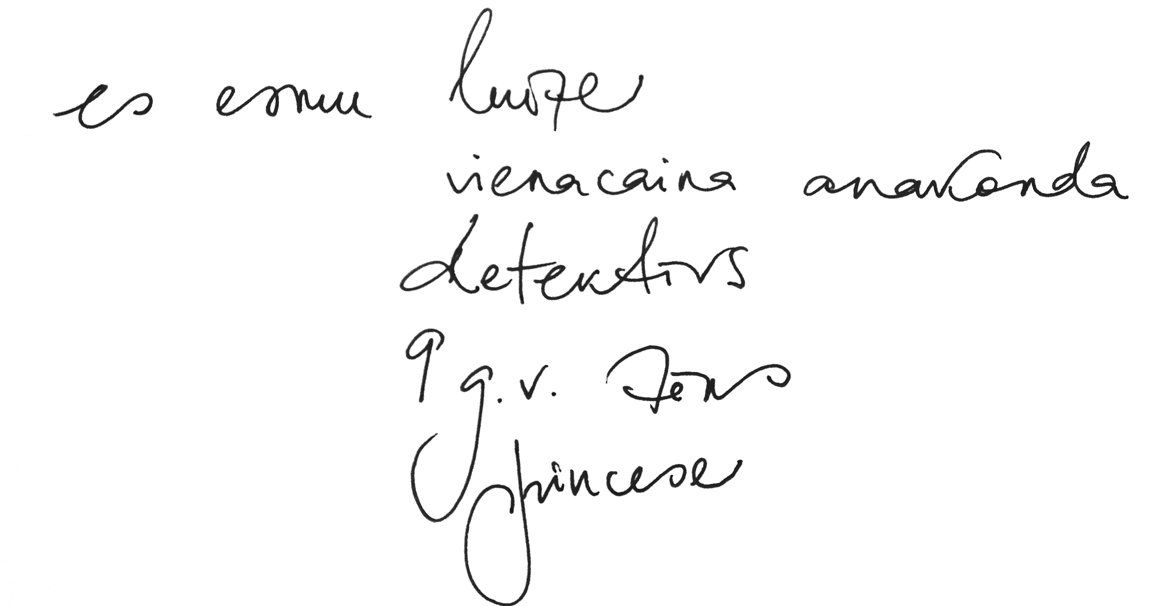 es esmu luize
vienacaina anakonda
detektīvs
9 g.v. zēns
princese